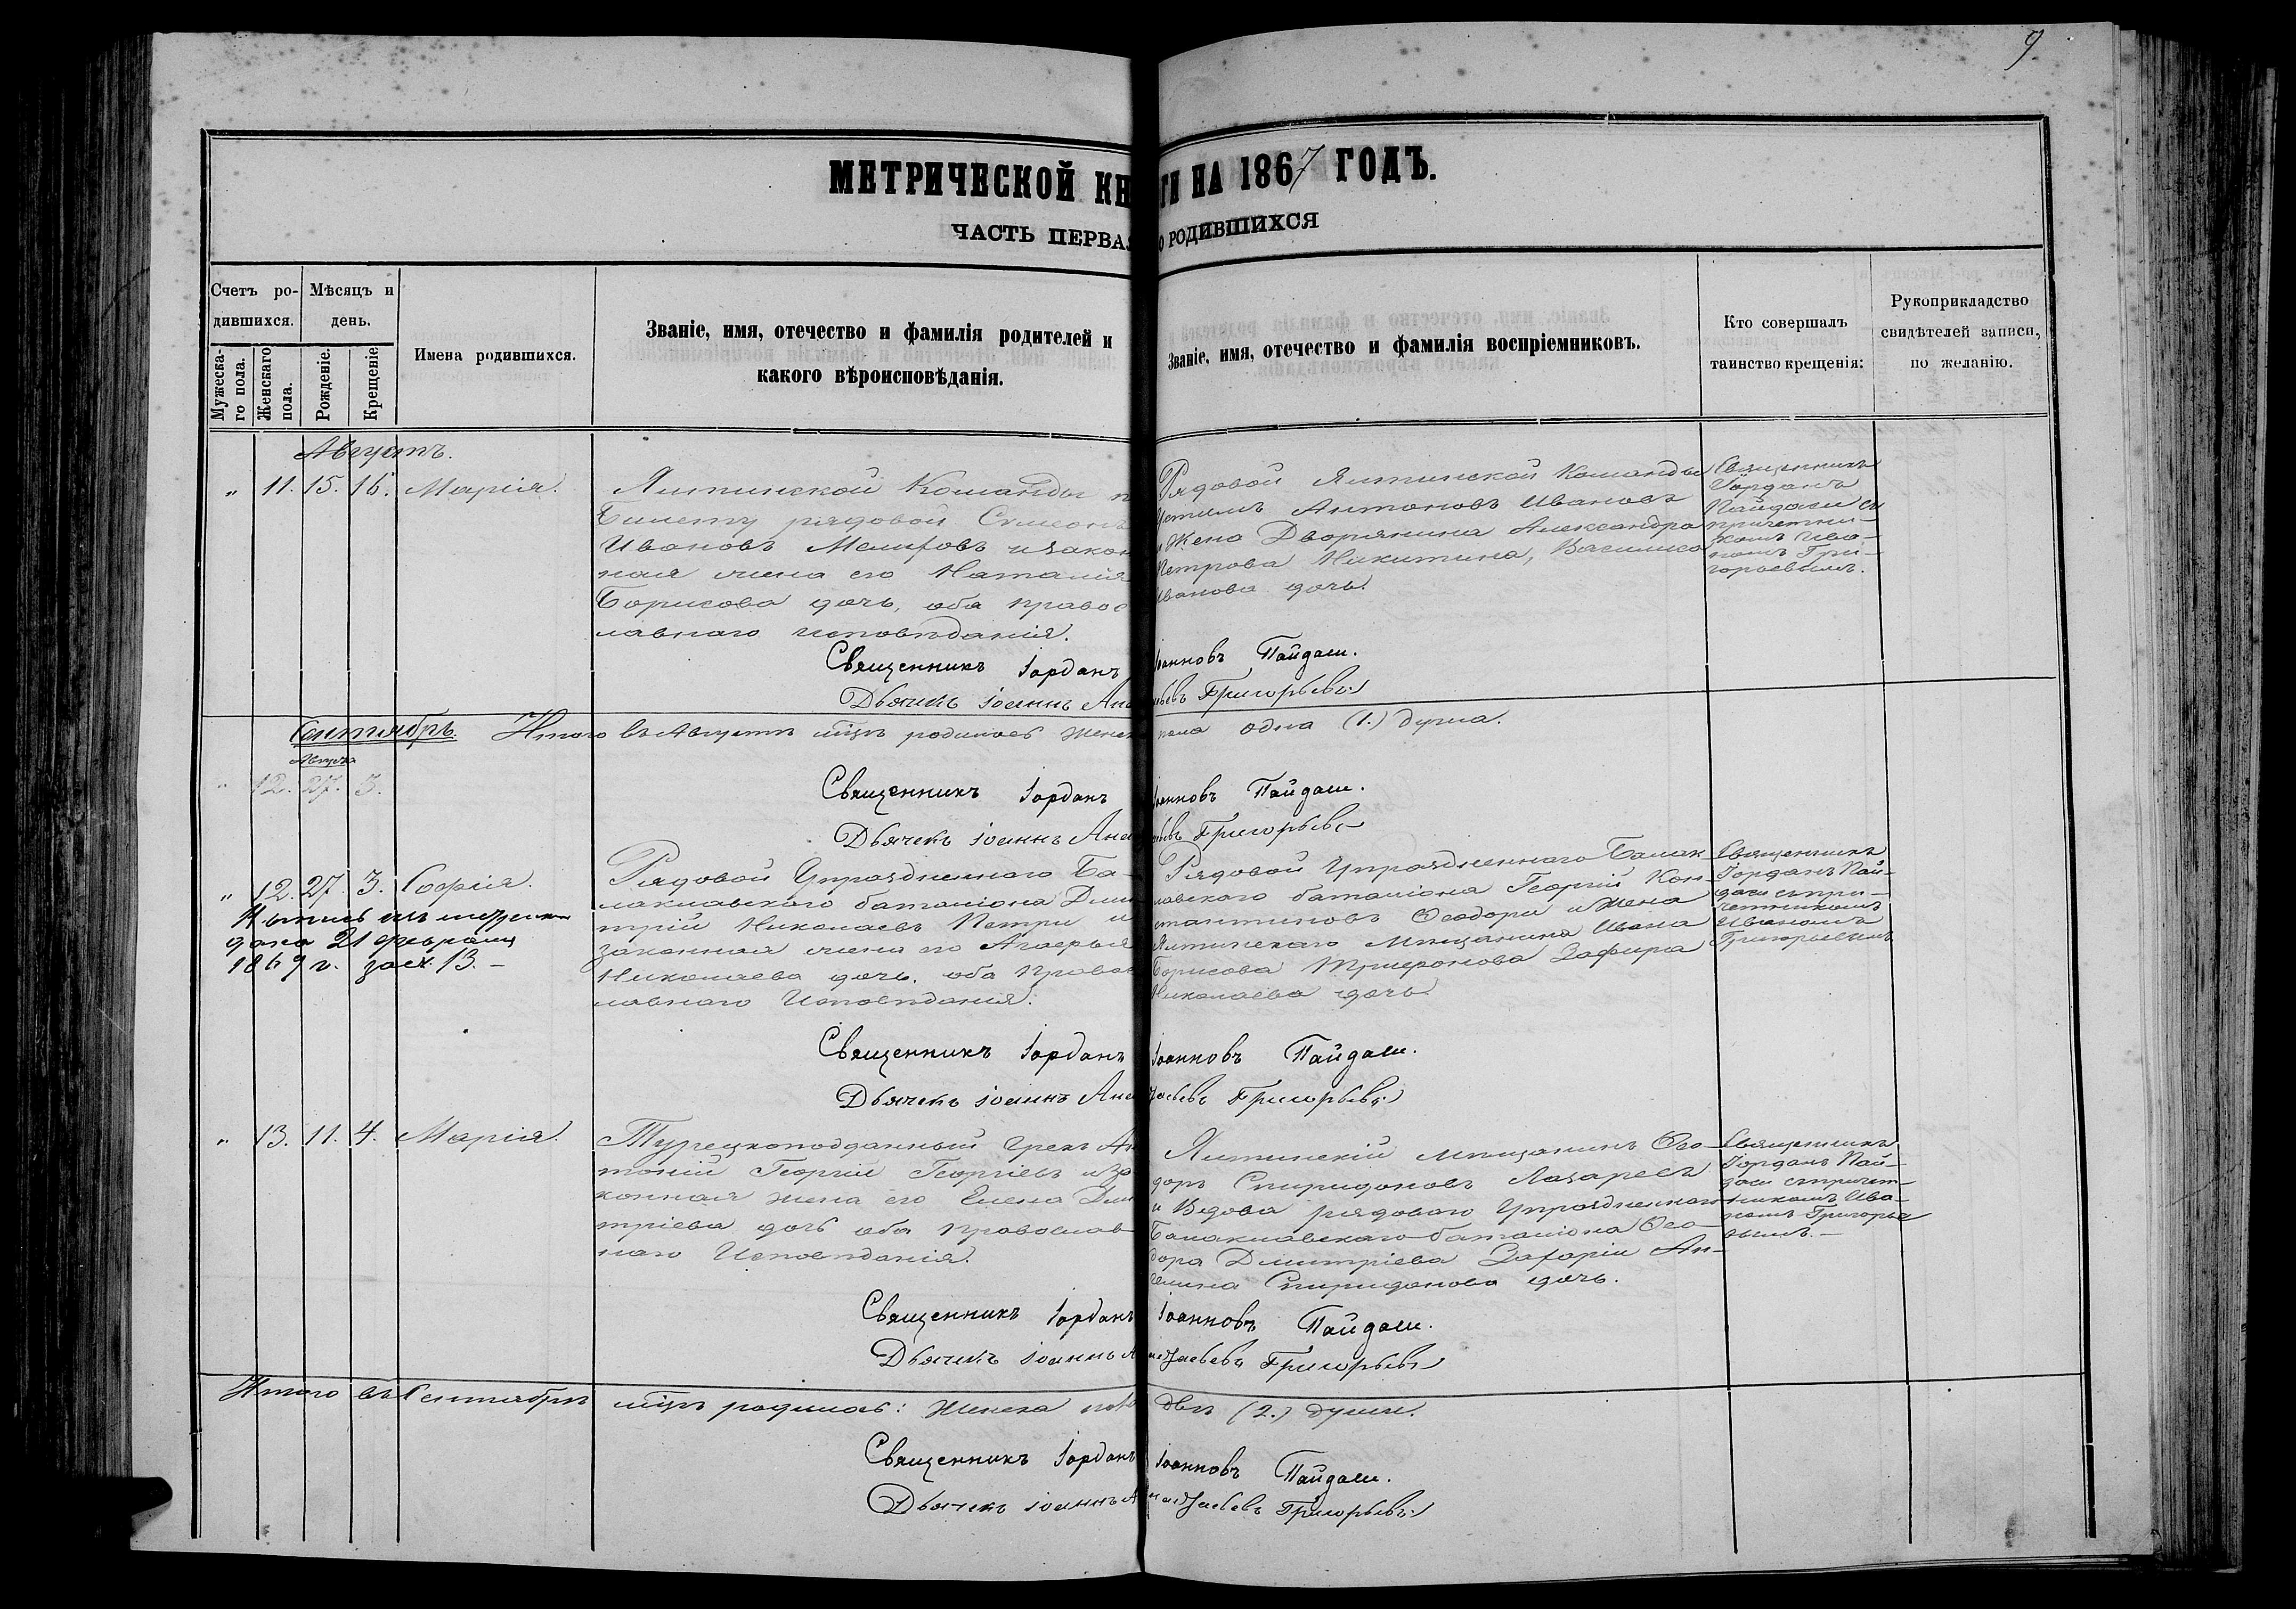 9.
МЕТРИЧЕСКОЙ КН
ГИ НА 1867 ГОДЪ.
ЧАСТЬ ПЕРВАЯ
О РОДИВШИХСЯ
Счетъ ро-
дившихся.
Мужеска-
го пола.
Женскаго
пола.
Мѣсяцъ и
день.
Рожденіе.
Крещеніе
Имена родившихся.
Званіе, имя, отечество и фамилія родителей и
какого вѣроисповѣданія.
Званіе, имя, отечество и фамилія воспріемниковъ.
Кто совершалъ
таинство крещенія:
Рукоприкладство
свидѣтелей записи,
по желанію.
Августъ.
" 11. 15. 16. Марія.
Ялтинской Команды п
Билету рядовой Симеонъ
Ивановъ и закон
ная жена его Наталія
Борисова дочь, оба правос
лавнаго исповѣданія.
Рядовой Ялтинской Команды
Устимъ Антоновъ Ивановъ
и жена Дворянина Александра
Петрова Никитина, Василиса
Иванова дочь.
Священникъ
Іорданъ
Пайдаси съ
причетни-
комъ Ива-
номъ Гри-
горьевымъ.
Священникъ Іорданъ
Іоанновъ Пайдаси.
Дьячекъ Іоаннъ Ана
ьевъ Григорьевъ
Итого въ Августѣ мцѣ родилось женск
пола одна (1.) душа.
Сентябрь.
Августа
" 12. 27. 3.
Священникъ Іорданъ
Іоанновъ Пайдаси.
Дьячекъ Іоаннъ Ана
ьевъ Григорьевъ
" 12. 27. 3. Софія.
дана 21 февраля
1869 г. за № 13. -
Рядовой Упраздненнаго Ба-
лаклавскаго баталіона Дми
трій Николаевъ Петри и
законная жена его
Николаева дочь, оба правос
лавнаго Исповѣданія.
Рядовой Упраздненнаго Балак
лавскаго баталіона Георгій Кон-
стантиновъ Ѳеодори и жена
Ялтинскаго Мѣщанина Ивана
Борисова Зафира
Николаева дочь.
Священникъ
Іорданъ Пай-
даси съ при-
четникомъ
Иваномъ
Григорьевымъ
Священникъ Іорданъ
Іоанновъ Пайдаси.
Дьячекъ Іоаннъ Ана
ьевъ Григорьевъ
" 13. 11. 4. Марія.
Турецкоподданный Грекъ Ан
тоній Георгіи Георгіевъ и за
конная жена его Елена Дми
тріева дочь оба Православ
наго Исповѣданія.
Ялтинскій мѣщанинъ Ѳео-
доръ Спиридоновъ Лазаревъ
и Вдова рядоваго Упраздненнаго
Балаклавскаго баталіона Ѳео-
дора Дмитріева Ан-
гелина Спиридонова дочь.
Священникъ
Іорданъ Пай-
даси съ причет-
никомъ Ива-
номъ Григорье
вымъ. -
Священникъ Іорданъ
Іоанновъ Пайдаси.
Дьячекъ Іоаннъ А
ьевъ Григорьевъ
Итого въ Сентябрѣ мцѣ родилось: Женска пола
двѣ (2.) души.
Священникъ Іорданъ
Іоанновъ Пайдаси.
Дьячекъ Іоаннъ А
ьевъ Григорьевъ